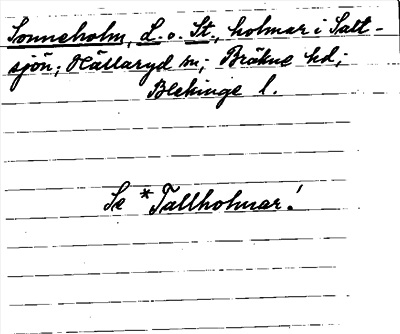 Sonneholm, L. o. St., holmar i Salt-
sjön; Hällaryd sn; Bräkne hd;
Blekinge l.
Se *Tallholmar!